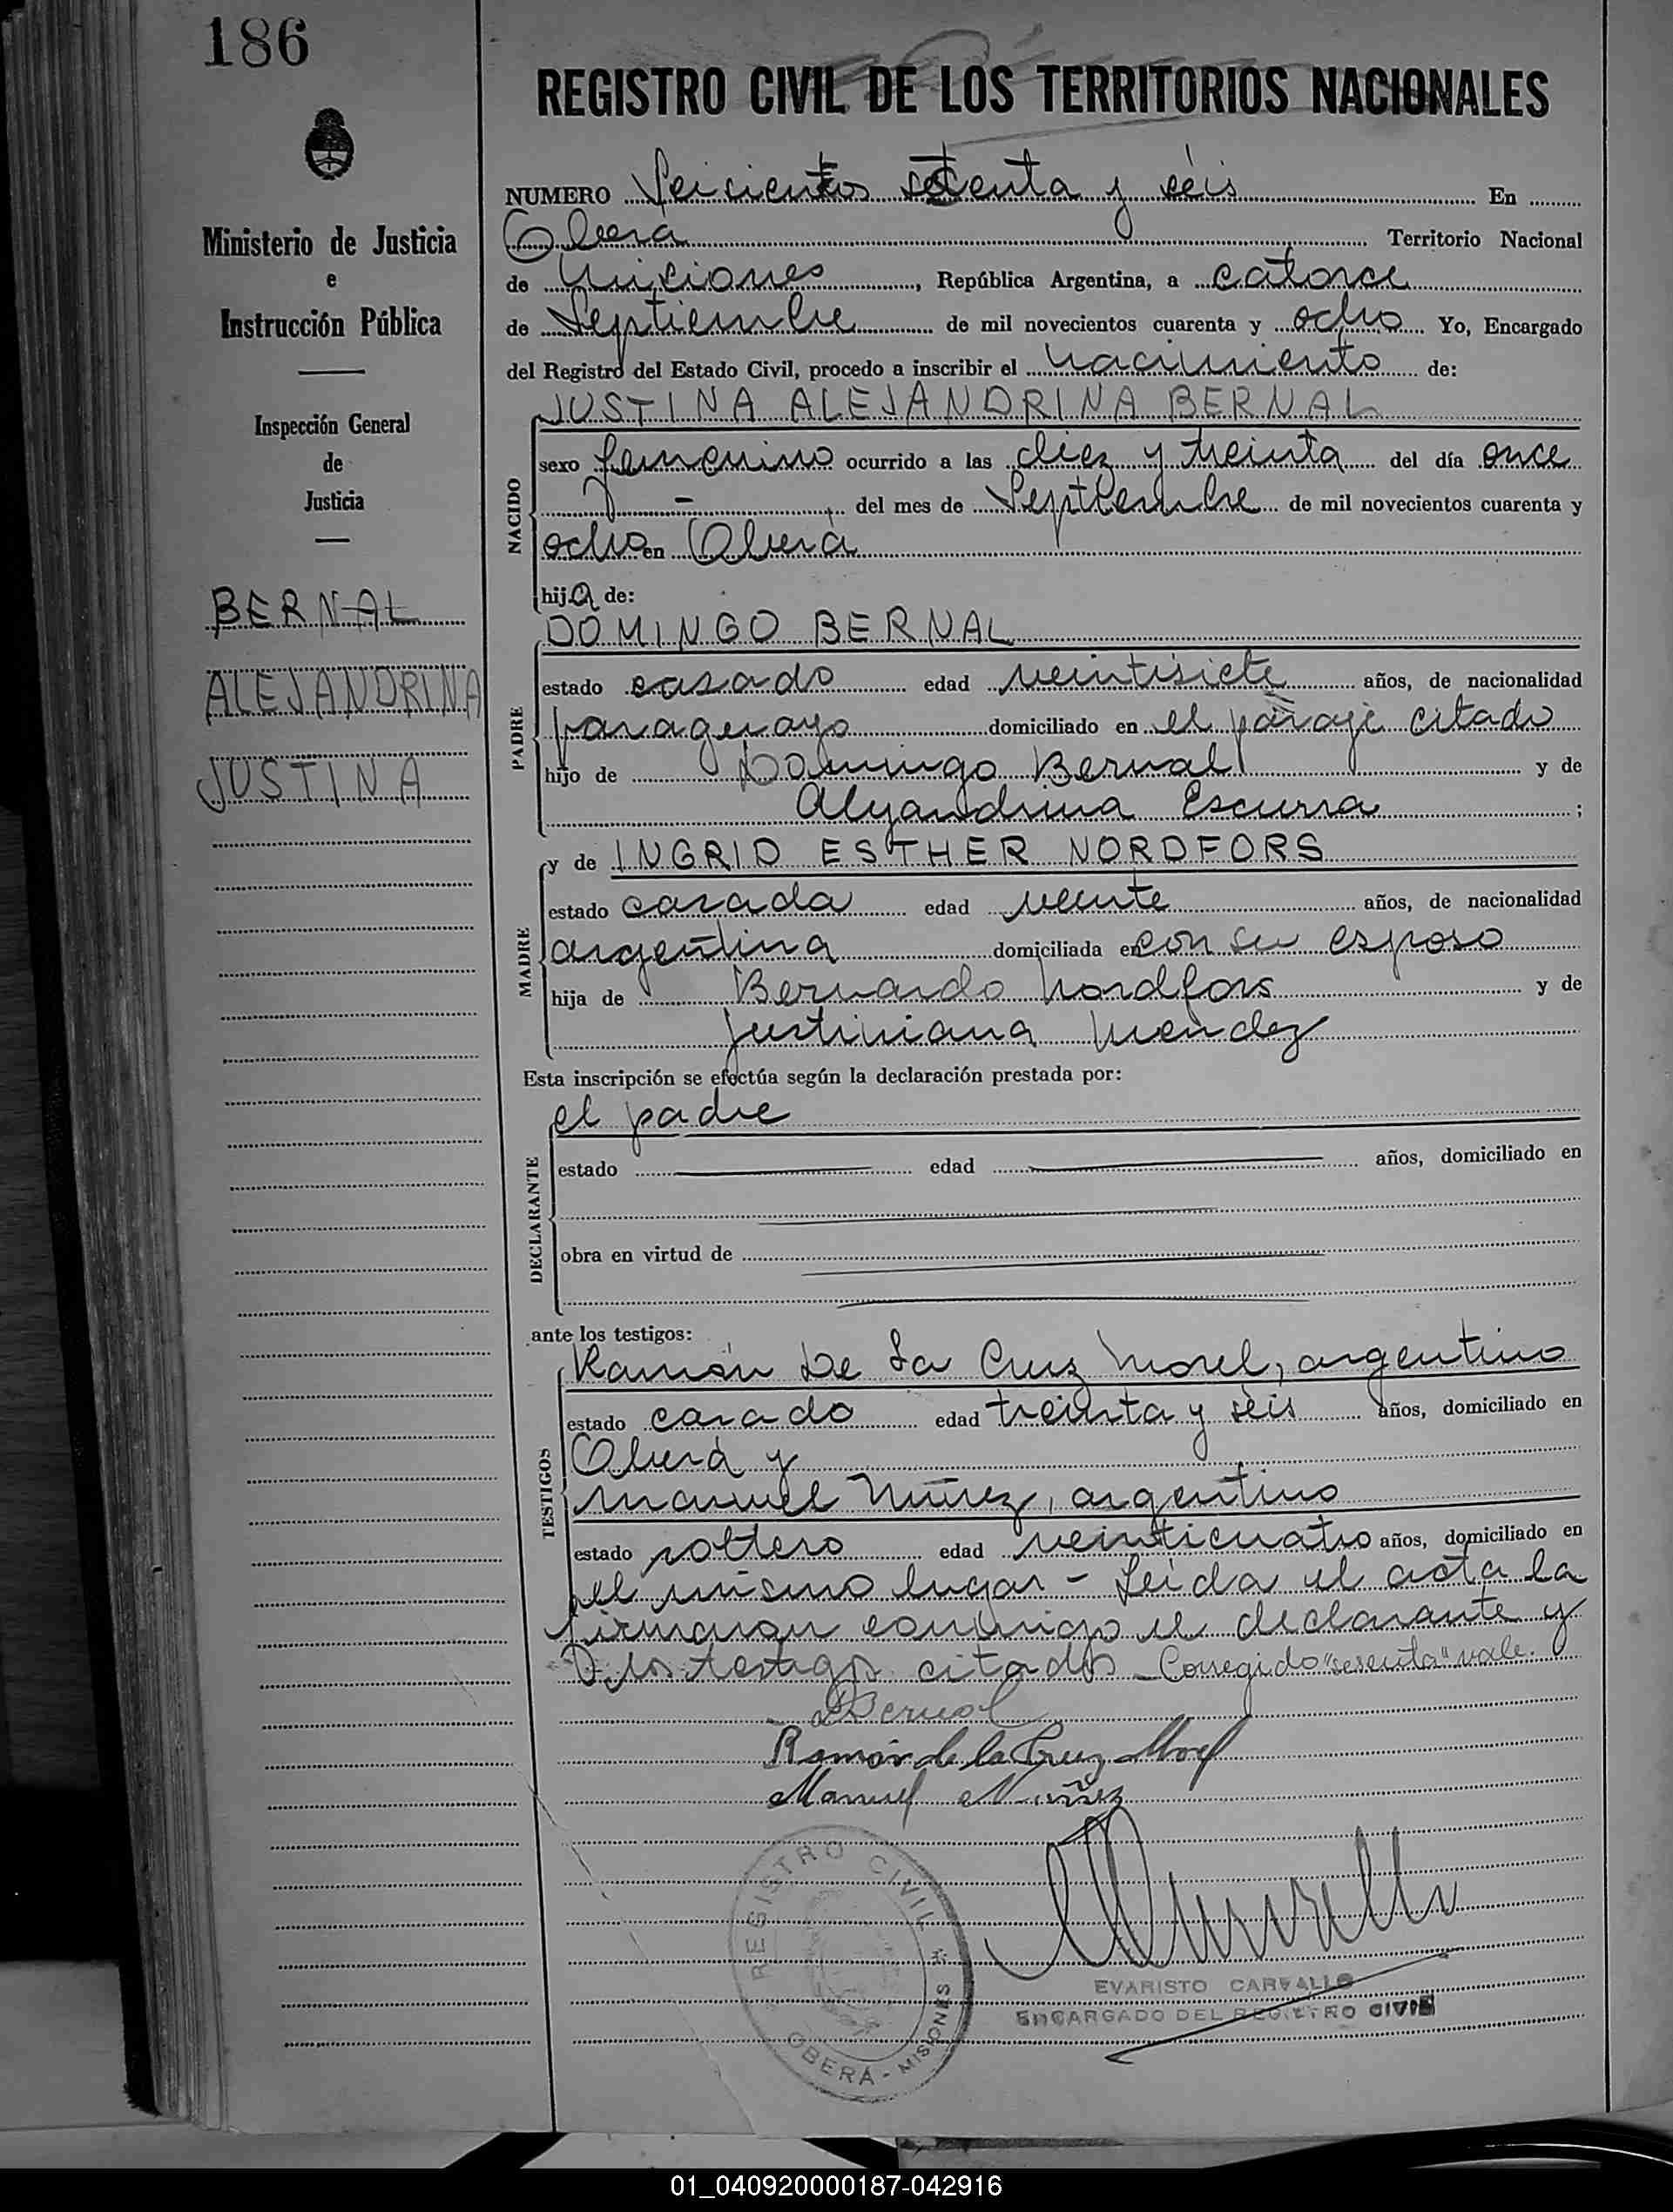 186
REGISTRO CIVIL DE LOS TERRITORIOS NACIONALES
Ministerio de Justicia
e
Instrucción Pública
Inspección General
de
Justicia
BERNAL
ALEJANDRINA
JUSTINA
NUMERO Seiscientos setenta y séis En
Oberá Territorio Nacional
de Misiones, República Argentina, a catorce
de Septiembre de mil novecientos cuarenta y ocho Yo, Encargado
del Registro del Estado Civil, procedo a inscribir el nacimiento de:
JUSTINA ALEJANDRINA BERNAL
NACIDO
sexo femenino ocurrido a las diez y treinta del día once
- del mes de Septiembre de mil novecientos cuarenta y
ocho en Oberá
hija de:
DOMINGO BERNAL
PADRE
estado casado edad veintisiete años, de nacionalidad
paraguayo domiciliado en el paraje citado
hijo de Domingo Bernal y de
Alejandrina Escurra ;
y de INGRID ESTHER NORDFORS
MADRE
estado casada edad veinte años, de nacionalidad
argentina domiciliada en con su esposo
hija de Bernardo Nordfors y de
Justiniana Mendez
Esta inscripción se efectúa según la declaración prestada por:
el padre
DECLARANTE
estado edad años, domiciliado en
obra en virtud de
ante los testigos:
TESTIGOS
Ramón De La Cruz Morel, argentino
estado casado edad treinta y séis años, domiciliado en
Oberá y
Manuel Núñez, argentino
estado soltero edad veinticuatro años, domiciliado en
el mismo lugar - Leida el acta la
firmaron conmigo el declarante y
los testigos citados - Corregido "sesenta" vale.
DBernal
Ramón de la Cruz Morel
Manuel Nuñez
REGISTRO CIVIL
OBERÁ - MISIONES
EVARISTO CARVALLO
ENCARGADO DEL REGISTRO CIVIL
01_040920000187-042916